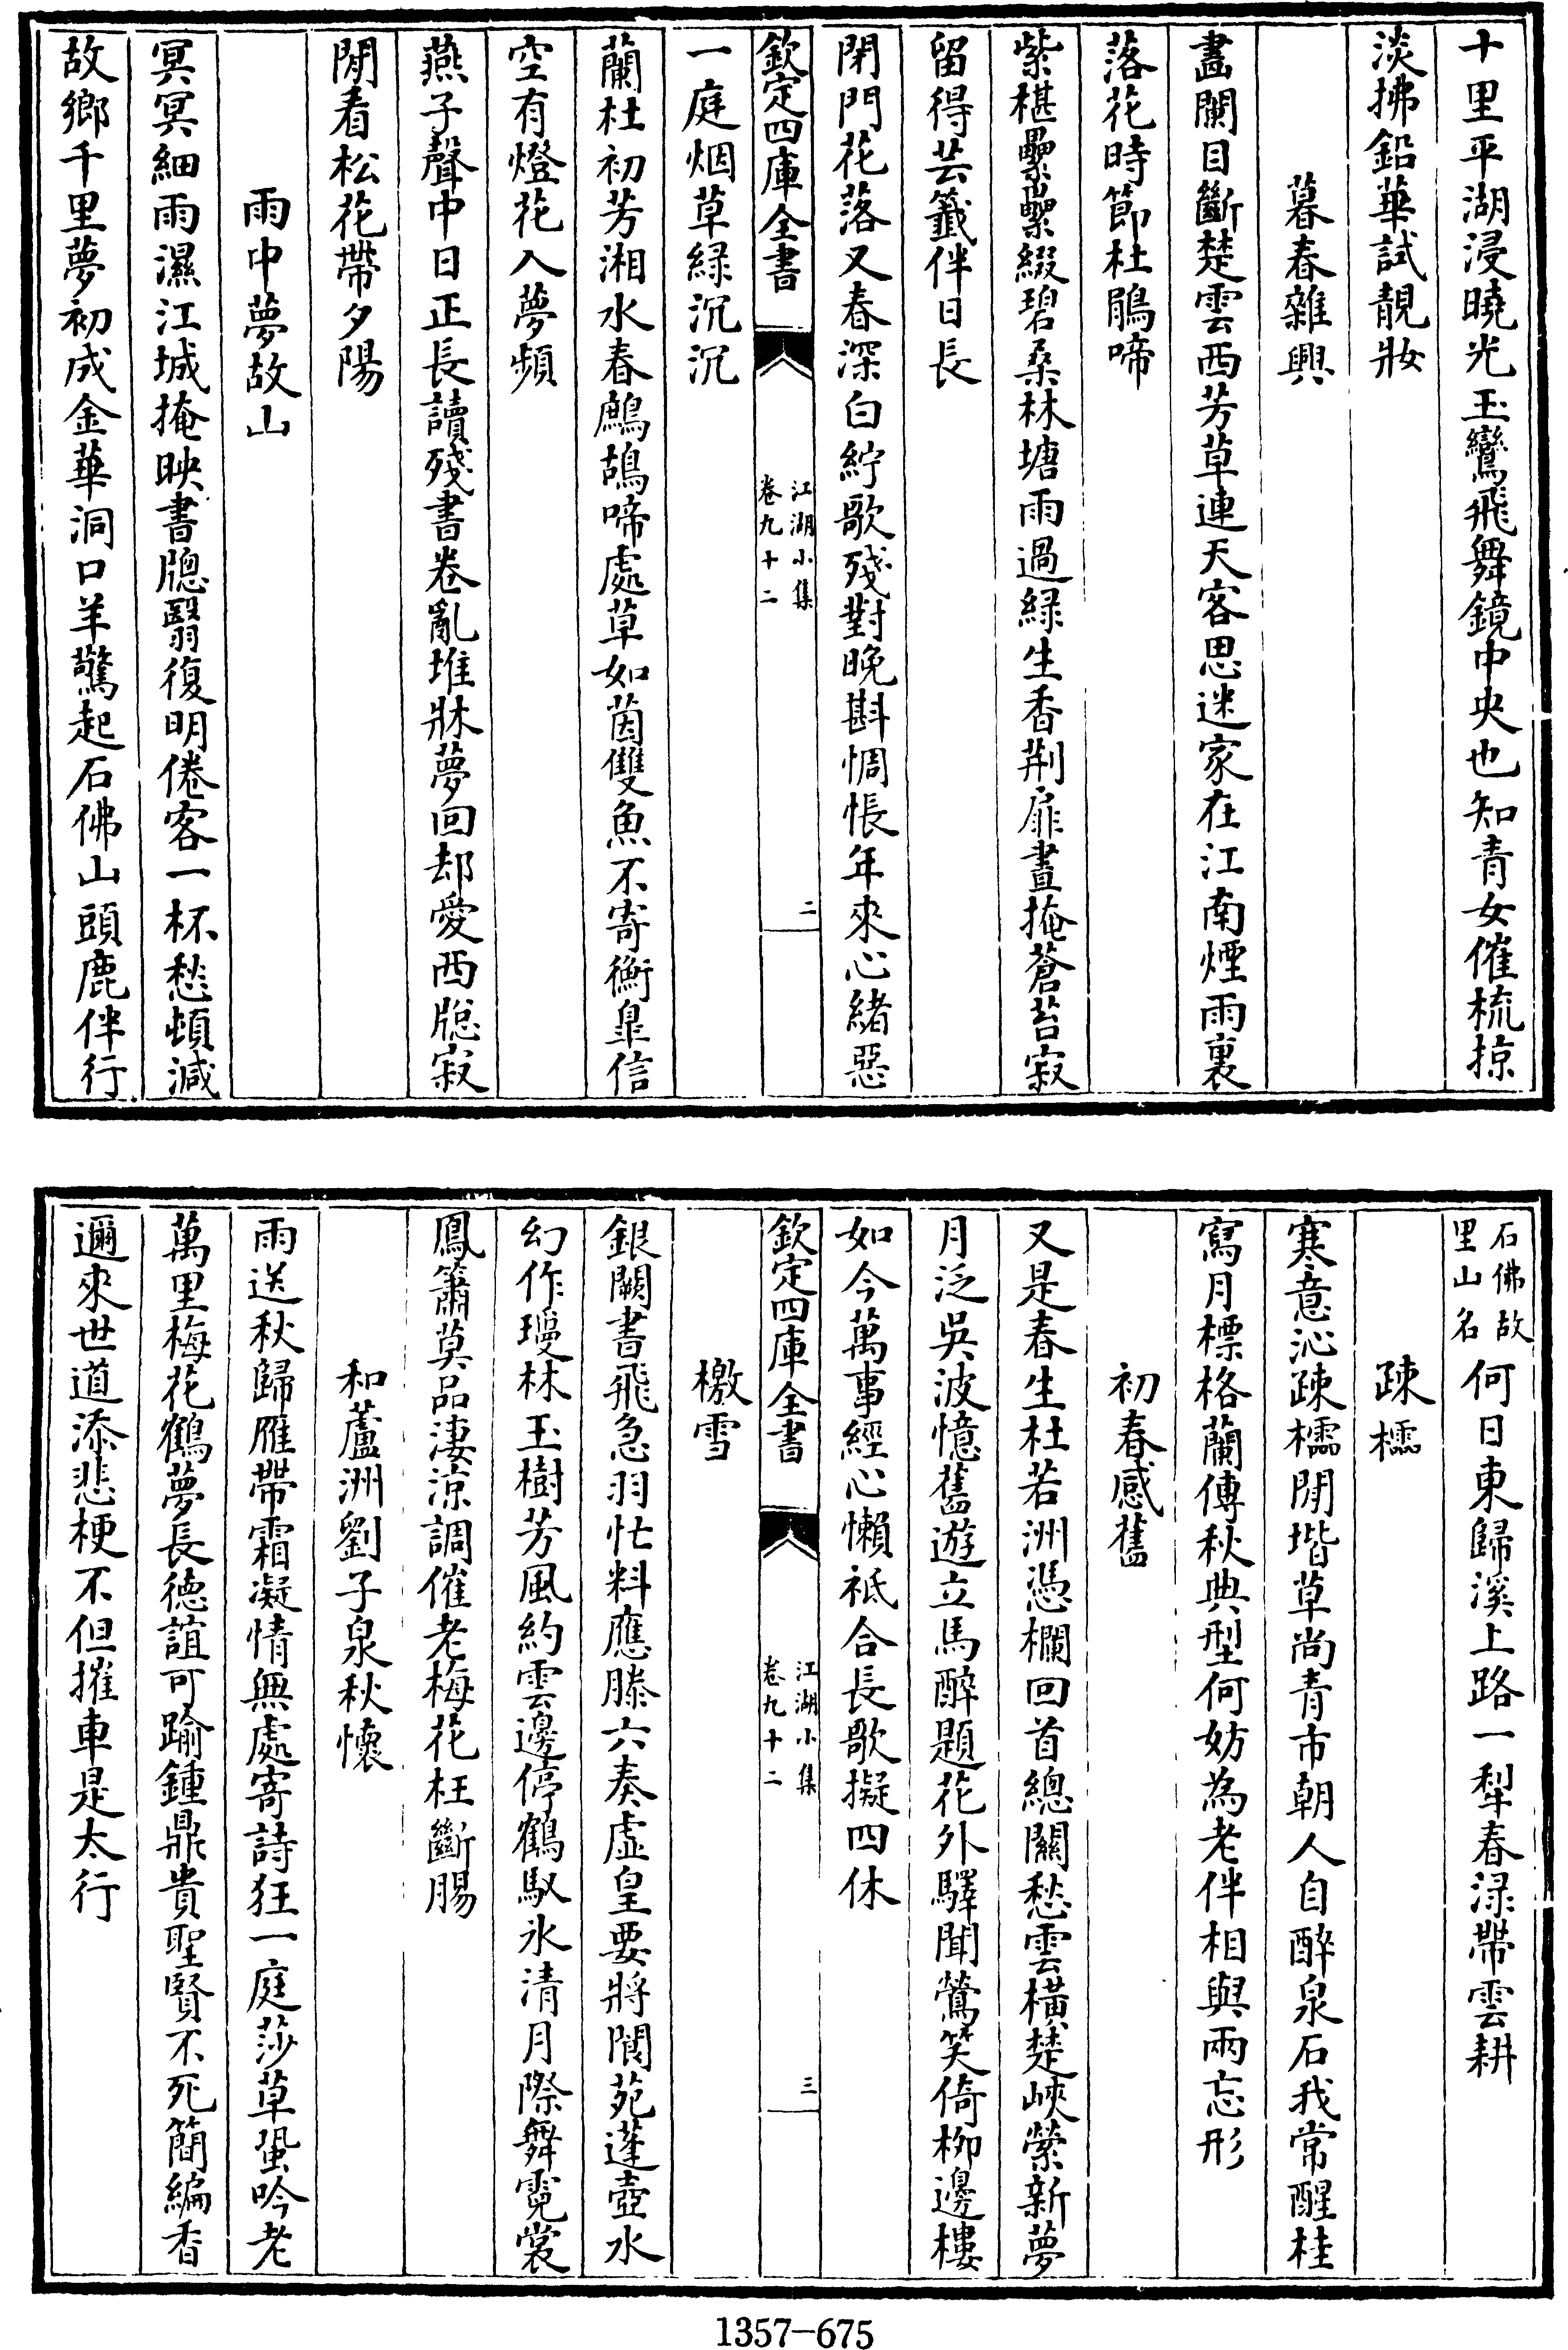 十里平湖浸曉光玉鸞飛舞鏡中央也知青女催梳掠
淡拂鉛華試靚妝
暮春雜興
畵闌目斷楚雲西芳草連天客思迷家在江南煙雨裏
落花時節杜鵑啼
紫椹纍纍綴碧桑林塘雨過緑生香荆扉晝掩蒼苔寂
留得芸籖伴日長
閉門花落又春深白紵歌殘對晚斟惆悵年來心緒惡
欽定四庫全書
江湖小集
卷九十二
二
一庭烟草緑沉沉
蘭杜初芳湘水春鷓鴣啼處草如茵雙魚不寄衡臯信
空有燈花入夢頻
燕子聲中日正長讀殘書卷亂堆牀夢回却愛西牕寂
閒看松花帶夕陽
雨中夢故山
冥冥細雨濕江城掩映書牕翳復明倦客一杯愁頓減
故鄉千里夢初成金華洞口羊驚起石佛山頭鹿伴行
石佛故
里山名
何日東歸溪上路一犁春渌帶雲耕
疎櫺
寒意沁疎櫺閒堦草尚青市朝人自醉泉石我常醒桂
寫月標格蘭傳秋典型何妨為老伴相與兩忘形
初春感舊
又是春生杜若洲憑欄回首總關愁雲橫楚峽縈新夢
月泛吳波憶舊遊立馬醉題花外驛聞鶯笑倚栁邊樓
如今萬事經心懶祗合長歌擬四休
欽定四庫全書
江湖小集
卷九十二
三
檄雪
銀闕書飛急羽忙料應滕六奏虛皇要將閬苑蓬壺水
幻作瓊林玉樹芳風約雲邊停鶴馭氷清月際舞霓裳
鳳簫莫品淒涼調催老梅花枉斷腸
和蘆洲劉子泉秋懷
雨送秋歸雁帶霜凝情無處寄詩狂一庭莎草蛩吟老
萬里梅花鶴夢長徳誼可踰鍾鼎貴聖賢不死簡編香
邇來世道添悲梗不但摧車是太行
1357-675